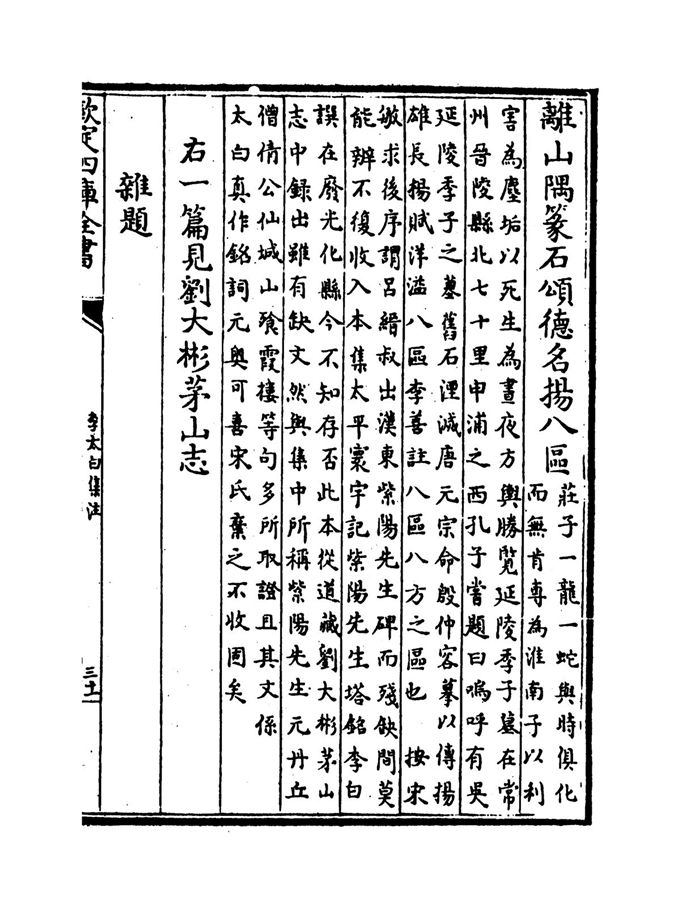 離山隅篆石頌德名揚八區
莊子一龍一蛇與時俱化
而無肯專為淮南子以利
害為塵垢以死生為晝夜方輿勝覽延陵季子墓在常
州晉陵縣北七十里申浦之西孔子嘗題曰嗚呼有吳
延陵季子之墓舊石湮滅唐元宗命殷仲容摹以傳揚
雄長揚賦洋溢八區李善註八區八方之區也　按宋
敏求後序謂呂縉叔出漢東紫陽先生碑而殘缺間莫
能辨不復收入本集太平寰宇記紫陽先生塔銘李白
譔在廢光化縣今不知存否此本從道藏劉大彬茅山
志中録出雖有缺文然與集中所稱紫陽先生元丹丘
僧倩公仙城山飡霞樓等句多所取證且其文係
太白真作銘詞元奥可喜宋氏棄之不收固矣
右一篇見劉大彬茅山志
雜題
欽定四庫全書
李太白集注
三十一